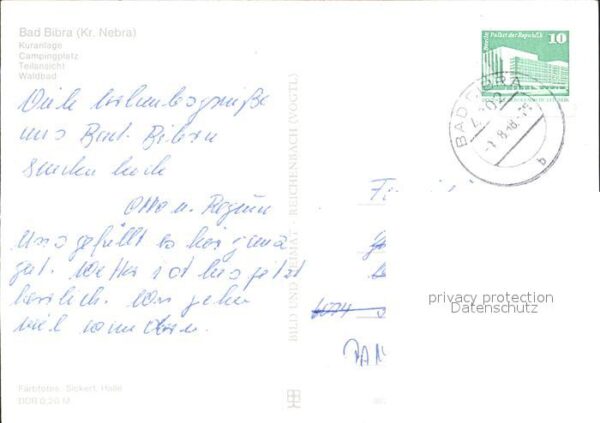 Bad Bibra (Kr. Nebra)
Kuranlage
Campingplatz
Teilansicht
Waldbad
Viele Urlaubsgrüße
aus Bad Bibra
senden Euch
Otto u. Regina
Uns gefällt es hier ganz
gut. Wetter ist bis jetzt
herrlich. Wir gehen
viel wandern.
Farbfotos: Sickert, Halle
DDR 0,20 M
BILD UND HEIMAT REICHENBACH (VOGTL)
10
Palast der Republik
BAD BIBRA
4802
b
privacy protection
Datenschutz